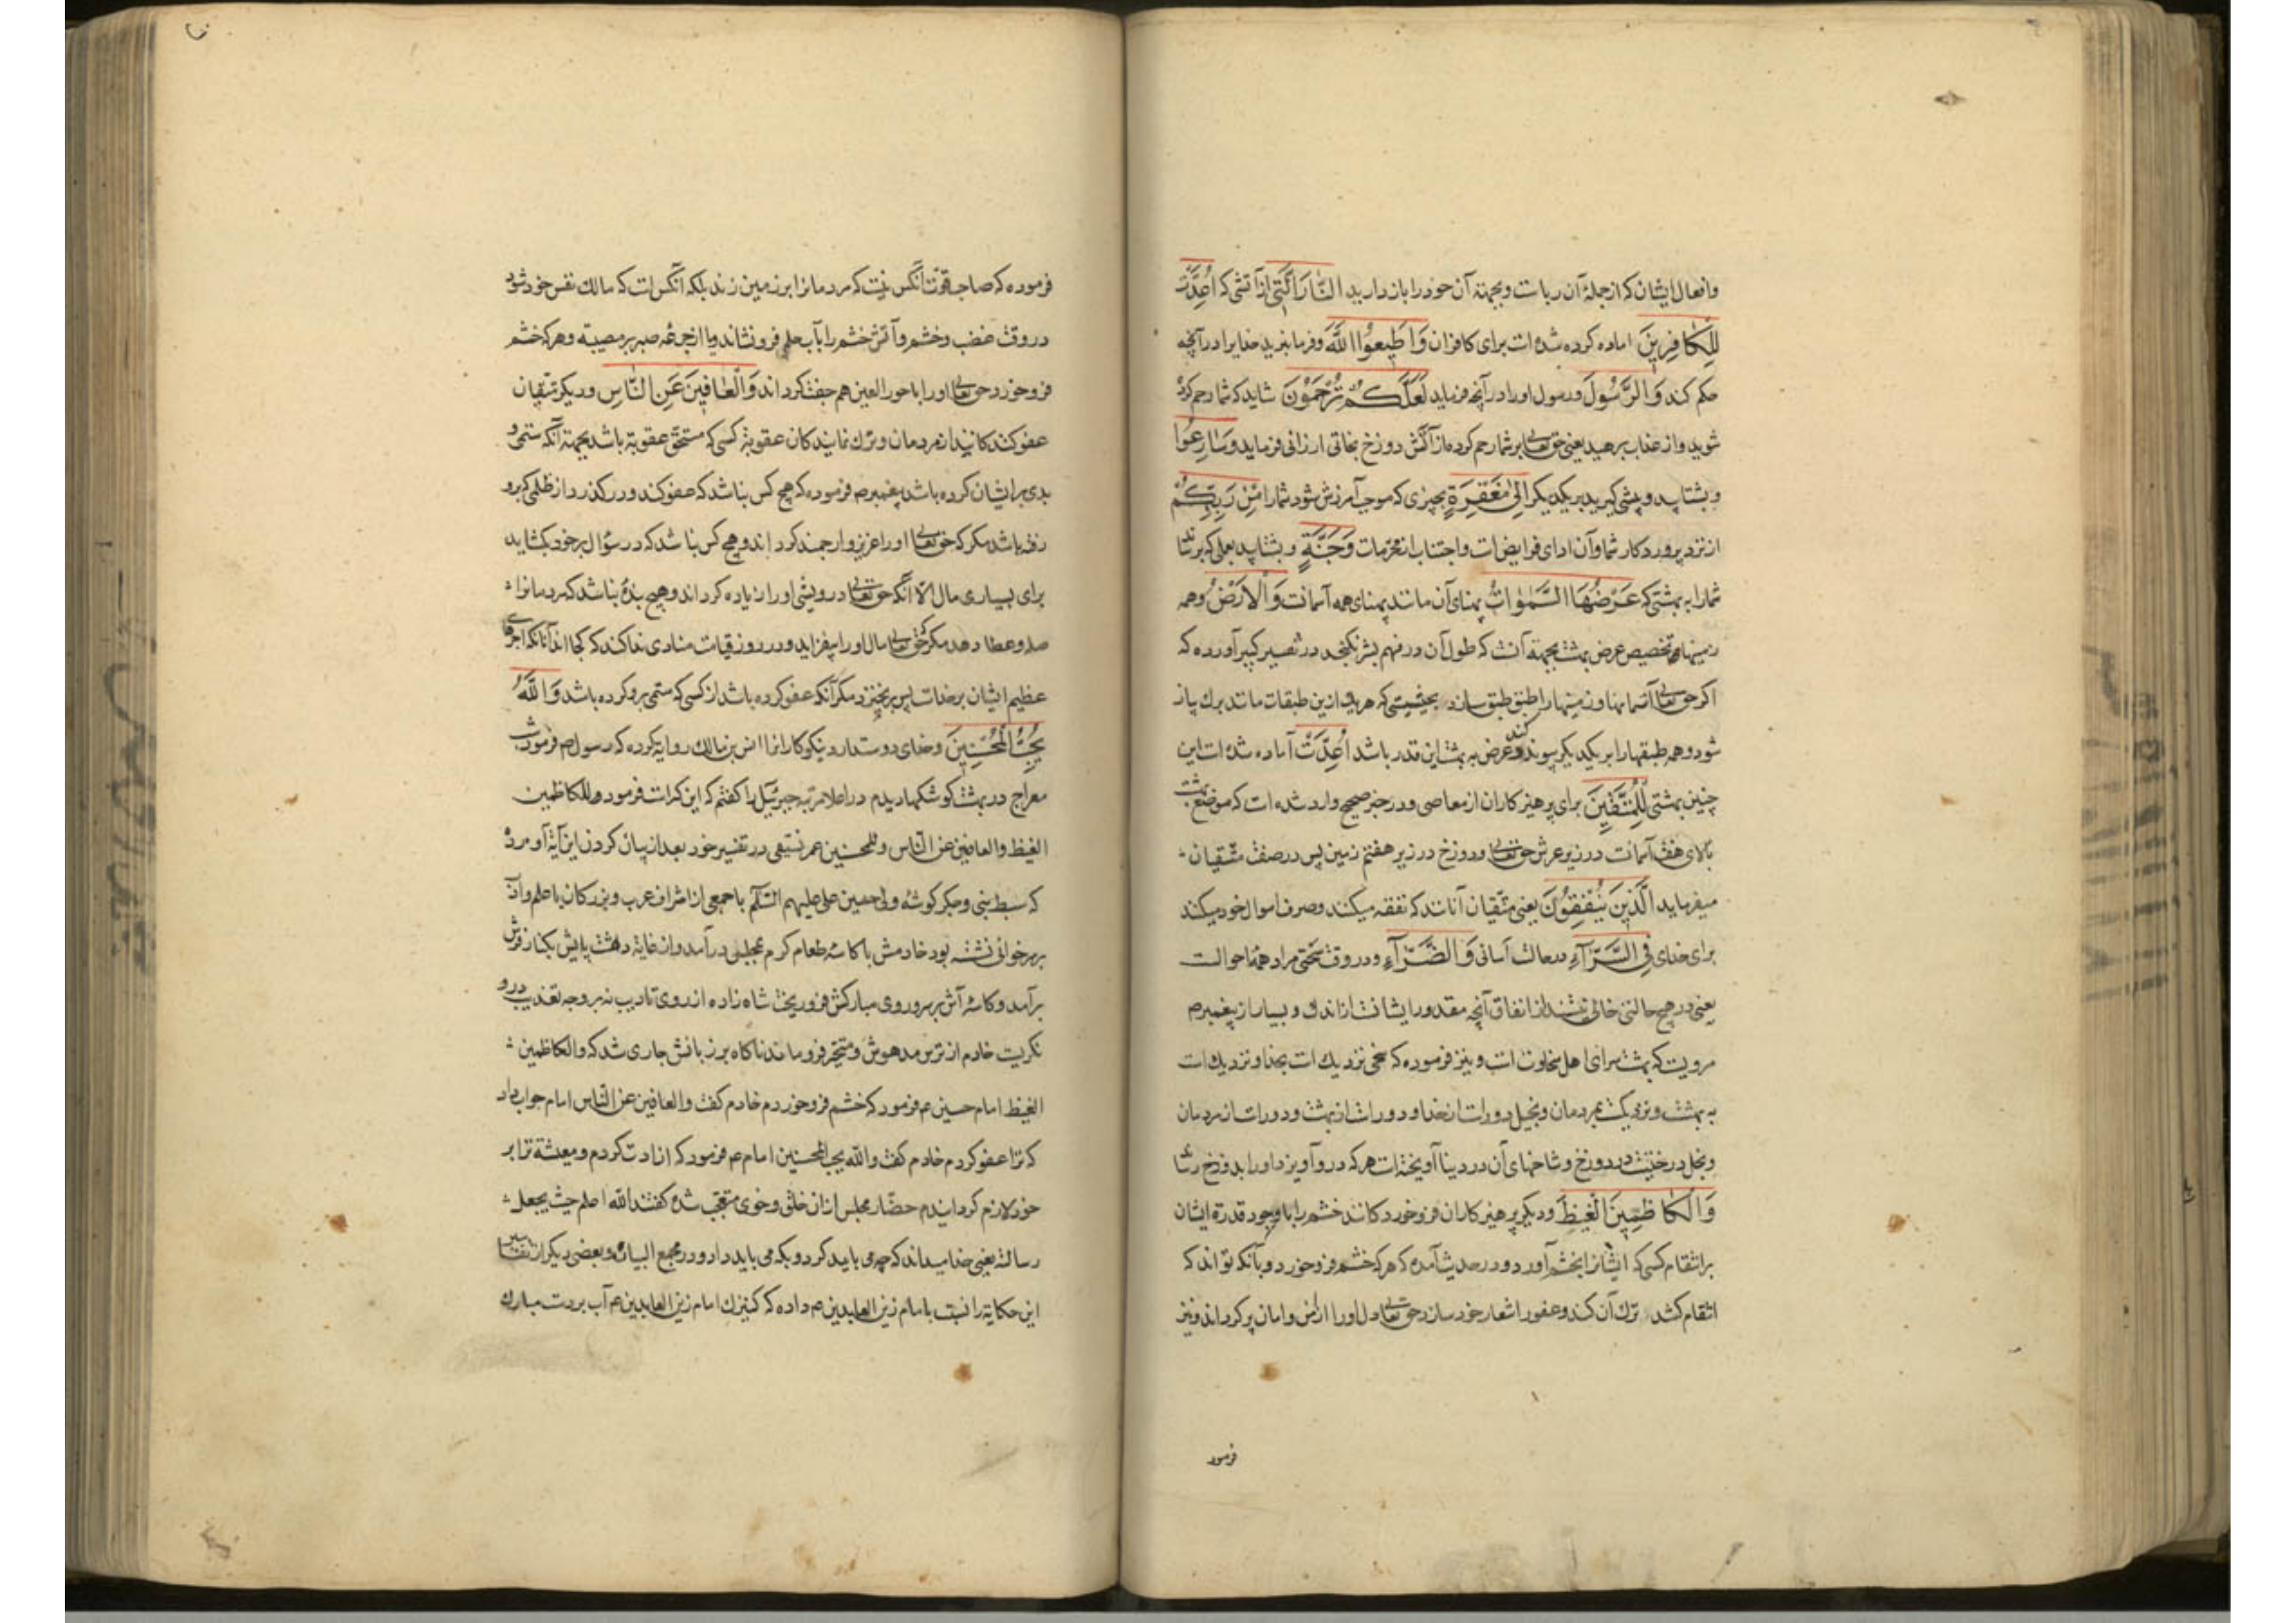 وافعال ایشان که از جملهٔ آن ربا است وبجهتهٔ آن خود را باز دارید النَّارَ الَّتی از آتشی که اُعِدَّت
لِلْکَافِرِینَ اماده کرده شده است برای کافران وَاَطِیعُوا اللّٰهَ وفرمانبرید خدایرا در آنچه
حکم کند وَالرَّسُولَ ورسول اورا در آنچه فرماید لَعَلَّکُمْ تُرْحَمُونَ شاید که شما رحم کرده
شوید واز عذاب برهید یعنی حق تعالی بر شما رحم کرده از آتش دوزخ نجاتی ارزانی فرماید وَسَارِعُوا
وبشتابید وپیشی گیرید بر یکدیگر اِلیٰ مَغْفِرَةٍ بچیزی که موجب آمرزش شود شما را مِنْ رَبِّکُمْ
از نزد پروردگار شما وآن ادای فرایض است واجتناب از محرمات وَجَنَّةٍ وبشتابید بعملی که برساند
شما را به بهشتی که عَرْضُهَا السَّمٰوَاتُ پهنای آن مانند پهنای همه آسمانست وَالْاَرْضُ وهمه
زمینها وتخصیص عرض بهشت بجهتهٔ آنست که طول آن در فهم بشر نگنجد در تفسیر کبیر آورده که
اگر حق تعالی آسمانها وزمینها را طبق طبق سازد بحیثیتی که هر یک ازین طبقات مانند برک پیاز
شود وهمه طبقها را بر یکدیگر پیوند کند وعرض بهشت این قدر باشد اُعِدَّتْ آماده شده است این
چنین بهشتی لِلْمُتَّقِینَ برای پرهیزکاران از معاصی ودر خبر صحیح وارد شده است که موضع بهشت
بالای هفت آسمانست در زیر عرش حق تعالی ودوزخ در زیر هفتم زمین پس در صفت متقیان
میفرماید الَّذِینَ یُنْفِقُونَ یعنی متقیان آنانند که نفقه میکنند وصرف اموال خود میکنند
برای خدای فِی السَّرَّآءِ در حالت آسانی وَالضَّرَّآءِ ودر وقت سختی مراد همهٔ احوالست
یعنی در هیچ حالتی خالی نیستند از انفاق آنچه مقدور ایشانست از اندک وبسیار از پیغمبر ص
مرویست که بهشت سرای اهل سخاوت است ونیز فرموده که سخی نزدیک است بخدا ونزدیک است
به بهشت ونزدیکست بمردمان وبخیل دور است از خدا ودور است از بهشت ودور است از مردمان
وبخل درختیست در دوزخ وشاخهای آن در دنیا آویخته است هر که در او آویزد او را بدوزخ رساند
وَالْکَاظِمِینَ الْغَیْظَ ودیگر پرهیزکاران فروخوردکانند خشم را با وجود قدرة ایشان
بر انتقام کسی که ایشانرا بخشم آورد ودر حدیث آمده که هر که خشم فروخورد وبآنکه تواند که
انتقام کشد ترک آن کند وعفو را شعار خود سازد حق تعالی دل اورا از امن وامان پر گرداند ونیز
فرمود
فرموده که صاحب قوت آنکس نیست که مردمانرا بر زمین زند بلکه آنکس است که مالک نفس خود شود
در وقت غضب وخشم وآتش خشم را بآب حلم فرونشاند ویا از جرعهٔ صبر بر مصیبة وهر که خشم
فروخورد حق تعالی اورا با حور العین هم جفت گرداند وَالْعَافِینَ عَنِ النَّاسِ ودیگر متقیان
عفو کنندکانند از مردمان وترک نمایندکان عقوبة کسی که مستحق عقوبة باشد بجهتهٔ آنکه ستمی و
بدی بر ایشان کرده باشد پیغمبر ص فرموده که هیچ کس نباشد که عفو کند ودر گذرد از ظلمی که برو
رفته باشد مگر که حق تعالی اورا عزیز وارجمند گرداند وهیچ کس نباشد که در سؤال بر خود بگشاید
برای بسیاری مال الا آنکه حق تعالی درویشی اورا زیاده گرداند وهیچ بندهٔ نباشد که مردمانرا
صله وعطا دهد مگر که حق تعالی مال اورا بیفزاید ودر روز قیامت منادی ندا کند که کجا اند آنانکه اجرهای
عظیم ایشان بر خداست پس برنخیزد مگر آنکه عفو کرده باشد از کسی که ستمی برو کرده باشد وَاللّٰهُ
یُحِبُّ الْمُحْسِنِینَ وخدای دوست دارد نیکوکارانرا انس بن مالک روایة کرده که رسول ص فرمود شب
معراج در بهشت کوشکها دیدم در اعلا مرتبه جبرئیل را گفتم که این کراست فرمود وللکاظمین
الغیظ والعافین عن الناس وللمحسنین عمر نسفی در تفسیر خود بعد از بیان کردن این آیة آورده
که سبط نبی وجگر گوشهٔ ولی حسین علی علیهم السلام با جمعی از اشراف عرب وبزرکان با علم وادب
بر سر خوانی نشسته بود خادمش با کاسهٔ طعام گرم بمجلس درآمد واز غایة دهشت پایش بکنار فرش
برآمد وکاسهٔ آش بر سر وروی مبارکش فرو ریخت شاه زاده از روی تادیب نه بر وجه تعذیب درو
نگریست خادم از ترس مدهوش ومتحیر فرو ماند ناگاه بر زبانش جاری شد که والکاظمین
الغیظ امام حسین ع فرمود که خشم فروخوردم خادم گفت والعافین عن الناس امام جواب داد
که ترا عفو کردم خادم گفت والله یحب المحسنین امام ع فرمود که ازادت کردم ومعیشة ترا بر
خود لازم گردانیدم حضّار مجلس ازان خلق وخوی متعجب شده گفتند الله اعلم حیث یجعل
رسالته یعنی خدا میداند که چه می باید کرد وبکه می باید داد ودر مجمع البیان وبعضی دیگر از تفاسیر
این حکایة را نسبت بامام زین العابدین ع داده که کنیزک امام زین العابدین ع آب بر دست مبارک